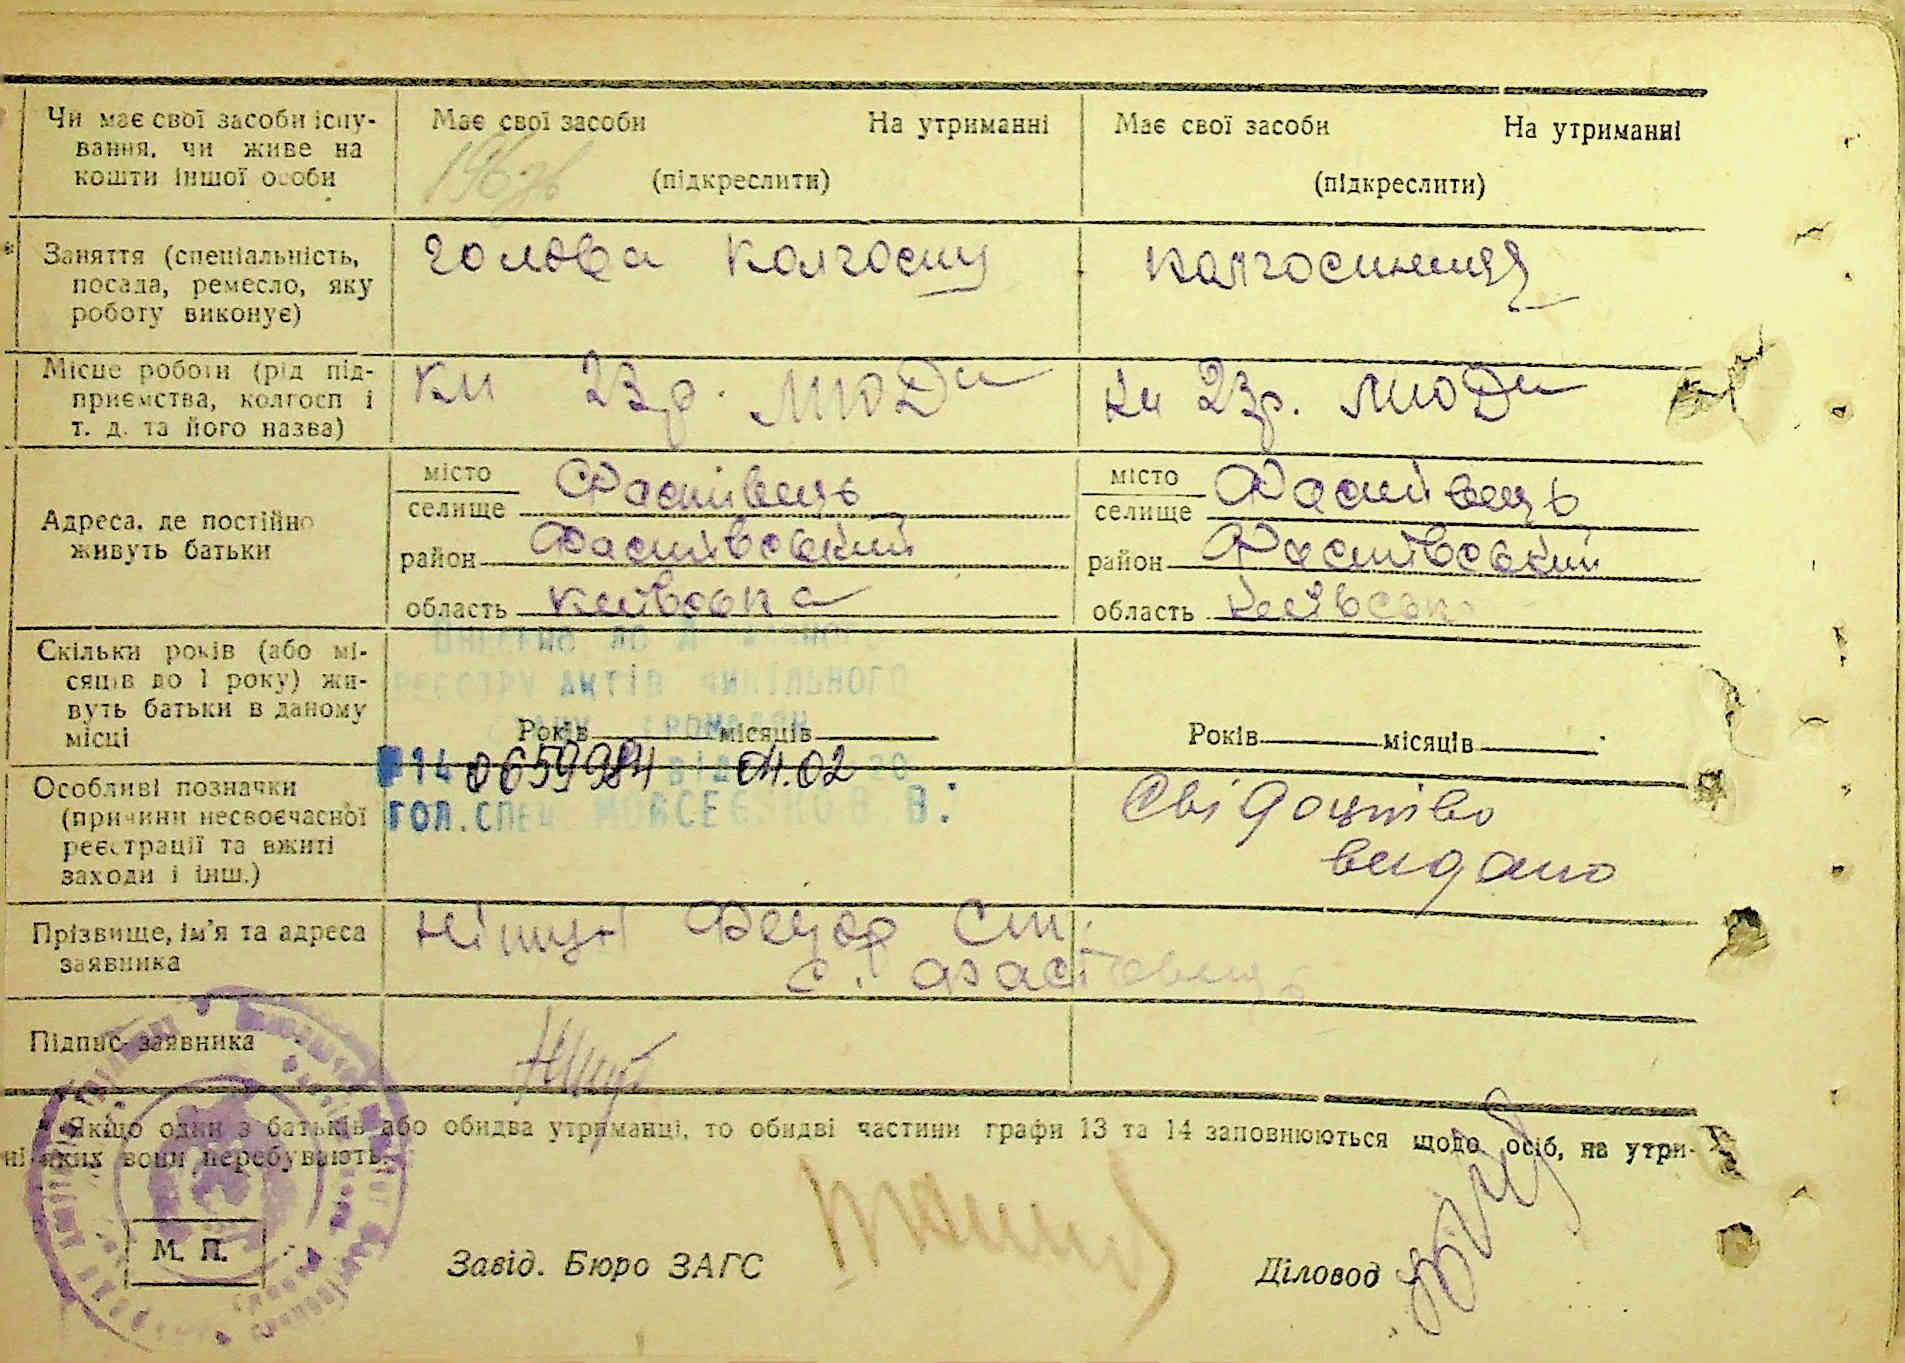 Чи має свої засоби існу-
вання, чи живе на
кошти іншої особи
Має свої засоби На утриманні
(підкреслити)
Має свої засоби На утриманні
(підкреслити)
Заняття (спеціальність,
посада, ремесло, яку
роботу виконує)
голова колгоспу
колгоспниця
Місце роботи (рід під-
приємства, колгосп і
т. д. та його назва)
км 23 р. МЮДи
км 23 р. МЮДи
Адреса, де постійно
живуть батьки
місто
селище Фастівець
район Фастівський
область Київська
місто
селище Фастівець
район Фастівський
область Київська
Скільки років (або мі-
сяців до 1 року) жи-
вуть батьки в даному
місці
Років місяців
Років місяців
ВНЕСЕНО ДО
РЕЄСТРУ АКТІВ ЦИВІЛЬНОГО
СТАНУ ГРОМАДЯН
№14 0659984 ВІД 04.02 20
ГОЛ.СПЕЦ В.
Особливі позначки
(причини несвоєчасної
реєстрації та вжиті
заходи і інш.)
Свідоцтво
видано
Прізвище, ім'я та адреса
заявника
Федор Ст.
с. Фастівець
Підпис заявника
* Якщо один з батьків або обидва утриманці, то обидві частини графи 13 та 14 заповнюються щодо осіб, на утри-
ні яких вони перебувають.
М. П.
Завід. Бюро ЗАГС
Діловод